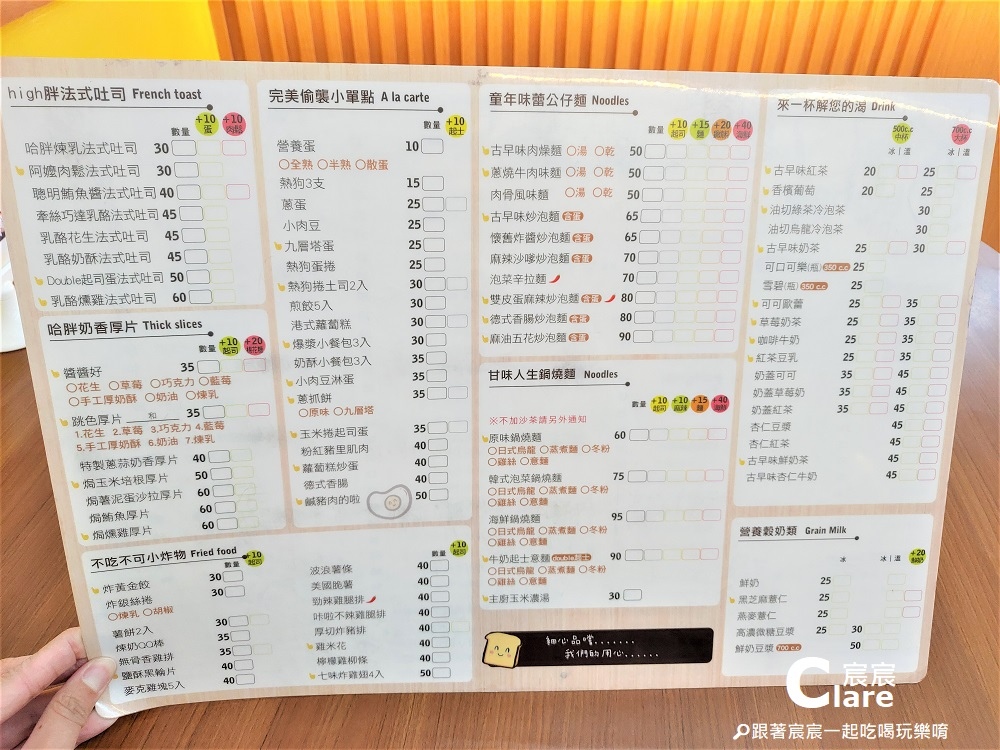 high胖法式吐司 French toast
數量 +10蛋 +10肉鬆
哈胖煉乳法式吐司 30
阿嬤肉鬆法式吐司 30
聰明鮪魚醬法式吐司 40
牽絲巧達乳酪法式吐司 45
乳酪花生法式吐司 45
乳酪奶酥法式吐司 45
Double起司蛋法式吐司 50
乳酪燻雞法式吐司 60
哈胖奶香厚片 Thick slices
數量 +10起司 +20
醬醬好 35
〇花生 〇草莓 〇巧克力 〇藍莓
〇手工厚奶酥 〇奶油 〇煉乳
跳色厚片 ___和___ 35
1.花生 2.草莓 3.巧克力 4.藍莓
5.手工厚奶酥 6.奶油 7.煉乳
特製蔥蒜奶香厚片 40
焗玉米培根厚片 50
焗薯泥蛋沙拉厚片 60
焗鮪魚厚片 60
焗燻雞厚片 60
完美偷襲小單點 A la carte
數量 +10起士
營養蛋 10
〇全熟 〇半熟 〇散蛋
熱狗3支 15
蔥蛋 25
小肉豆 25
九層塔蛋 25
熱狗蛋捲 25
熱狗捲土司2入 30
煎餃5入 30
港式蘿蔔糕 30
爆漿小餐包3入 30
奶酥小餐包3入 35
小肉豆淋蛋 35
蔥抓餅 35
〇原味 〇九層塔
玉米捲起司蛋 35
粉紅豬里肌肉 40
蘿蔔糕炒蛋 40
德式香腸 40
鹹豬肉的啦 50
不吃不可小炸物 Fried food
數量 +10起司
炸黃金餃 30
炸銀絲捲 30
〇煉乳 〇胡椒
薯餅2入 30
煉奶QQ棒 35
無骨香雞排 35
鹽酥黑輪片 40
麥克雞塊5入 40
數量 +10起司
波浪薯條 40
美國脆薯 40
勁辣雞腿排 40
咔啦不辣雞腿排 40
厚切炸豬排 40
雞米花 40
檸檬雞柳條 40
七味炸雞翅4入 50
童年味蕾公仔麵 Noodles
數量 +10起司 +15麵 +20 +40
古早味肉燥麵 〇湯 〇乾 50
蔥燒牛肉味麵 〇湯 〇乾 50
肉骨風味麵 〇湯 〇乾 50
古早味炒泡麵 含蛋 65
懷舊炸醬炒泡麵 含蛋 65
麻辣沙嗲炒泡麵 含蛋 70
泡菜辛拉麵 70
雙皮蛋麻辣炒泡麵 含蛋 80
德式香腸炒泡麵 含蛋 80
麻油五花炒泡麵 含蛋 90
甘味人生鍋燒麵 Noodles
數量 +10起司 +10 +15麵 +40
※不加沙茶請另外通知
原味鍋燒麵 60
〇日式烏龍 〇蒸煮麵 〇冬粉
〇雞絲 〇意麵
韓式泡菜鍋燒麵 75
〇日式烏龍 〇蒸煮麵 〇冬粉
〇雞絲 〇意麵
海鮮鍋燒麵 95
〇日式烏龍 〇蒸煮麵 〇冬粉
〇雞絲 〇意麵
牛奶起士意麵 double起士 90
〇日式烏龍 〇蒸煮麵 〇冬粉
〇雞絲 〇意麵
主廚玉米濃湯 30
細心品嚐.......
我們的用心......
來一杯解您的渴 Drink
500c.c中杯 700c.c大杯
冰｜溫 冰｜溫
古早味紅茶 20 25
香檳葡萄 20 25
油切綠茶冷泡茶 30
油切烏龍冷泡茶 30
古早味奶茶 25 30
可口可樂(瓶) 350 c.c 25
雪碧(瓶) 350 c.c 25
可可歐蕾 25 35
草莓奶茶 25 35
咖啡牛奶 25 35
紅茶豆乳 25 35
奶蓋可可 35 45
奶蓋草莓奶 35 45
奶蓋紅茶 35 45
杏仁豆漿 45
杏仁紅茶 45
古早味鮮奶茶 45
古早味杏仁牛奶 45
營養穀奶類 Grain Milk
冰 冰｜溫 +20鮮奶
鮮奶 25
黑芝麻薏仁 25
燕麥薏仁 25
高濃微糖豆漿 25 30
鮮奶豆漿 700 c.c 50
Clare 宸宸
跟著宸宸一起吃喝玩樂唷